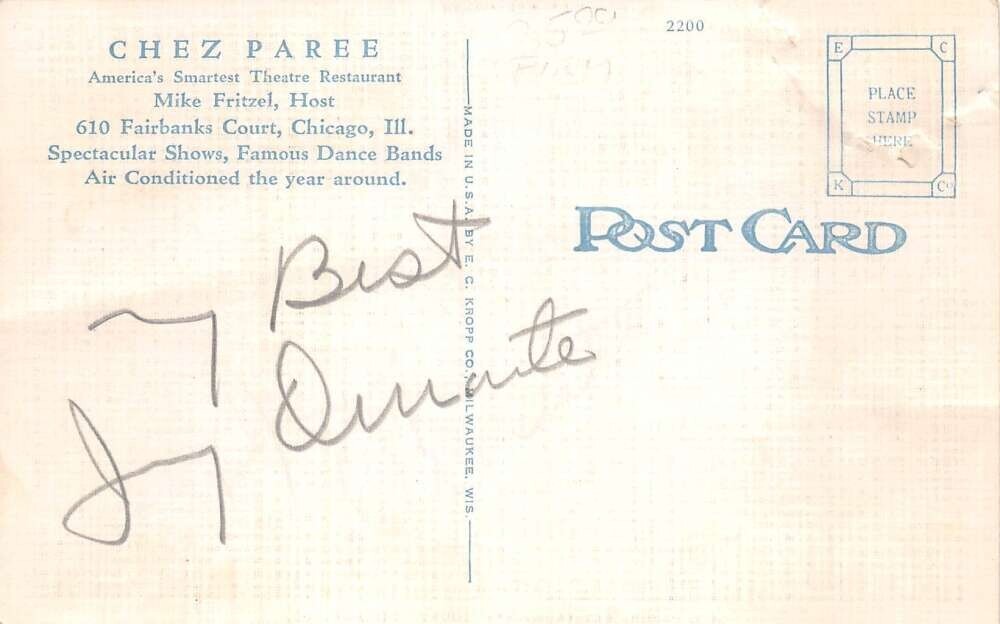 CHEZ PAREE
America's Smartest Theatre Restaurant
Mike Fritzel, Host
610 Fairbanks Court, Chicago, Ill.
Spectacular Shows, Famous Dance Bands
Air Conditioned the year around.
My Best
Jy Durante
MADE IN U.S.A. BY E. C. KROPP CO., MILWAUKEE, WIS.
2200
E C
PLACE
STAMP
HERE
K Co
POST CARD